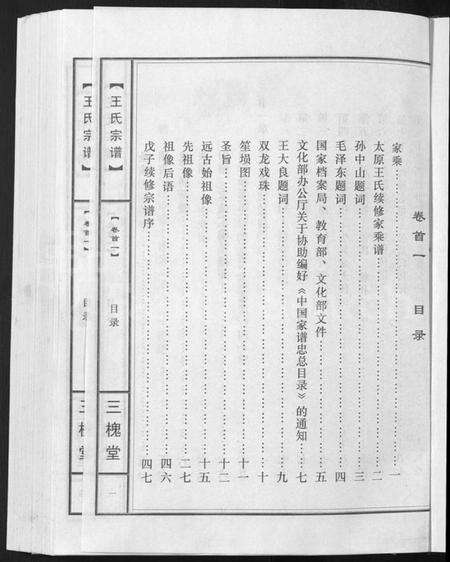 卷首一 目录
家乘……一
太原王氏续修家乘谱……二
孙中山题词……三
毛泽东题词……四
国家档案局、教育部、文化部文件……五
文化部办公厅关于协助编好《中国家谱忠总目录》的通知……七
王大良题词……九
双龙戏珠……十
笙埙图……十一
圣旨……十二
远古始祖像……十五
先祖像……二七
祖像后语……四六
戊子续修宗谱序……四七
【王氏宗谱】 【卷首一】 目录 三槐堂 一
【王氏宗谱】 【卷首一】 目录 三槐堂